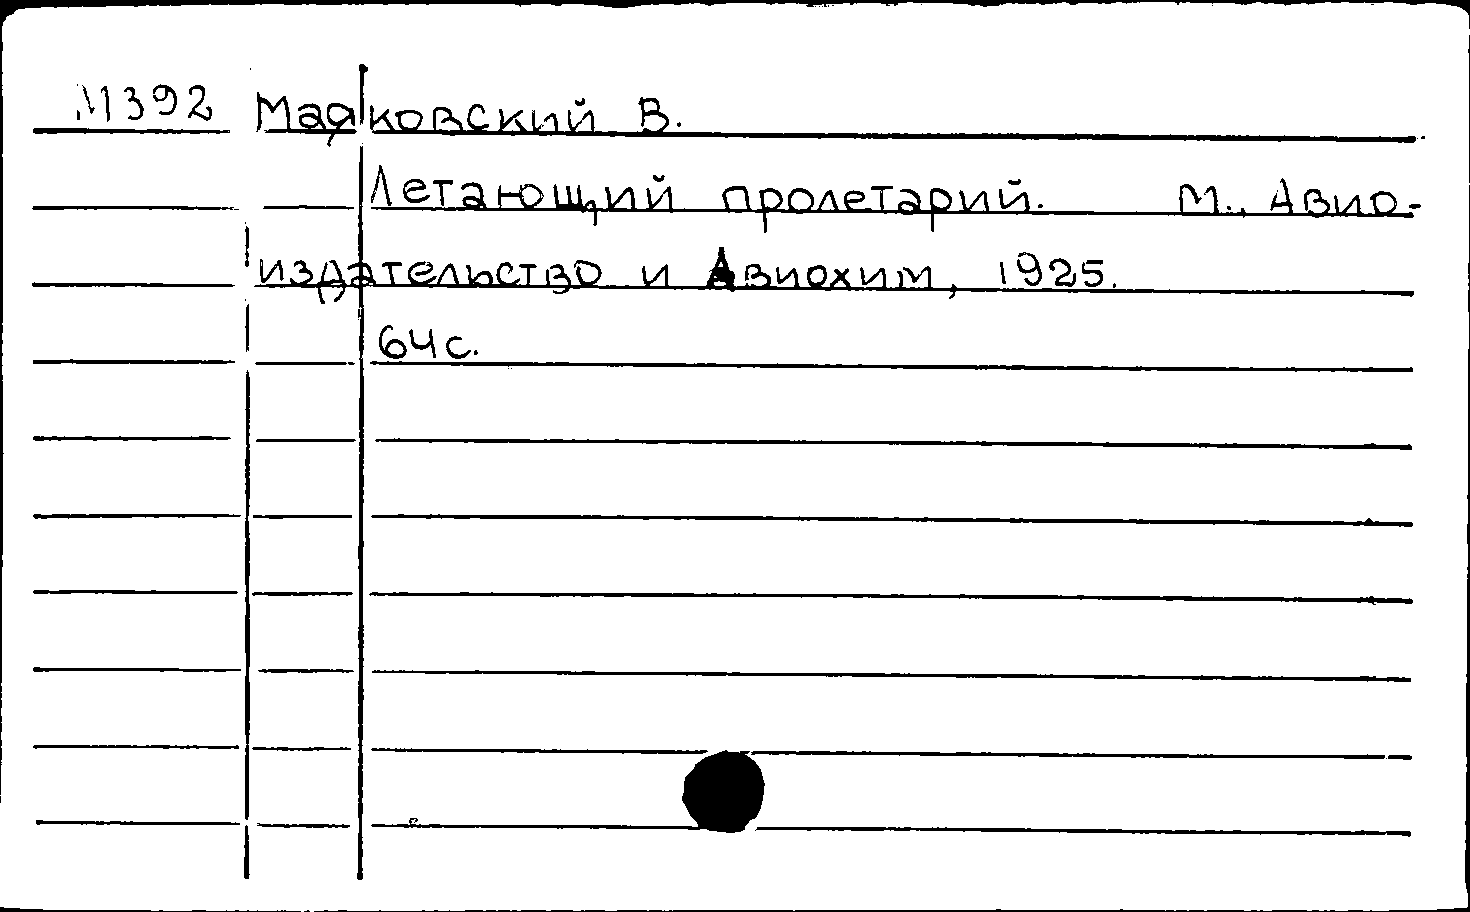 М392 Маяковский В.
Летающий пролетарий. М., Авио-
издательство и Авиохим, 1925.
64с.